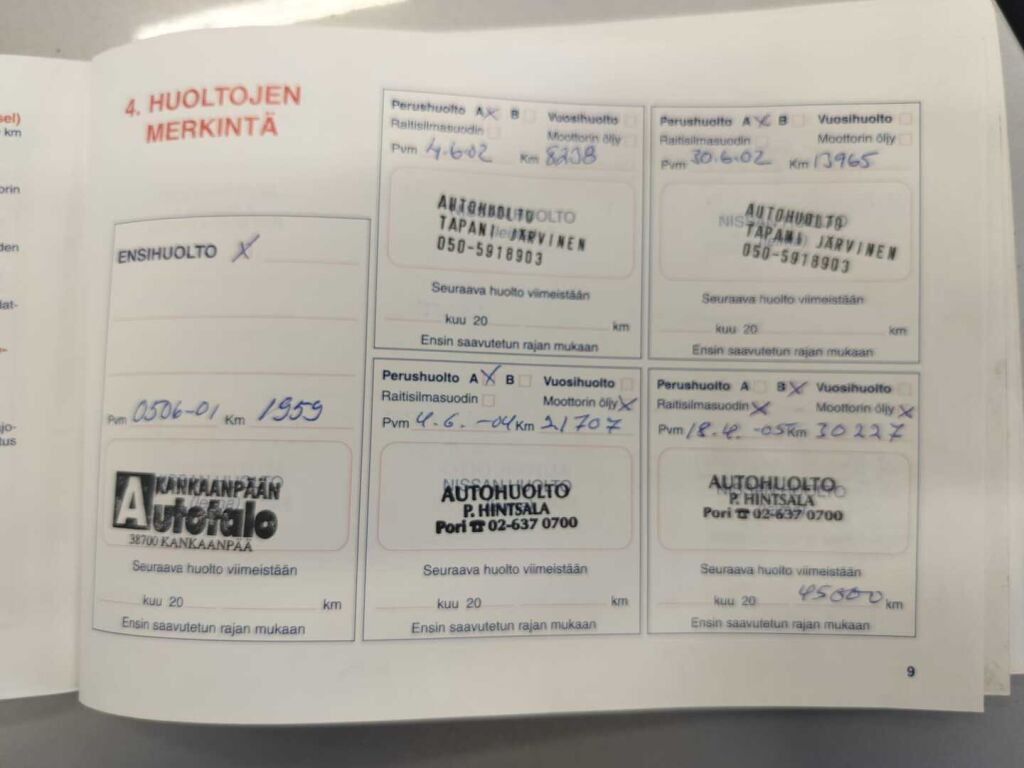 4. HUOLTOJEN
MERKINTÄ
ENSIHUOLTO X
Pvm 0506-01 Km 1959
KANKAANPÄÄN
Autotalo
38700 KANKAANPÄÄ
Seuraava huolto viimeistään
kuu 20 km
Ensin saavutetun rajan mukaan
Perushuolto A X B Vuosihuolto
Raitisilmasuodin Moottorin öljy
Pvm 4.6.02 Km 8238
AUTOHUOLTO
TAPANI JÄRVINEN
050-5918903
Seuraava huolto viimeistään
kuu 20 km
Ensin saavutetun rajan mukaan
Perushuolto A X B Vuosihuolto
Raitisilmasuodin Moottorin öljy
Pvm 30.6.02 Km 13965
NISSAN
AUTOHUOLTO
TAPANI JÄRVINEN
050-5918903
Seuraava huolto viimeistään
kuu 20 km
Ensin saavutetun rajan mukaan
Perushuolto A X B Vuosihuolto
Raitisilmasuodin Moottorin öljy X
Pvm 4.6.-04 Km 21707
NISSAN HUOLTO
AUTOHUOLTO
P. HINTSALA
Pori ☎ 02-637 0700
Seuraava huolto viimeistään
kuu 20 km
Ensin saavutetun rajan mukaan
Perushuolto A B X Vuosihuolto
Raitisilmasuodin X Moottorin öljy X
Pvm 18.4.-05 Km 30227
AUTOHUOLTO
P. HINTSALA
Pori ☎ 02-637 0700
Seuraava huolto viimeistään
kuu 20 45000 km
Ensin saavutetun rajan mukaan
9